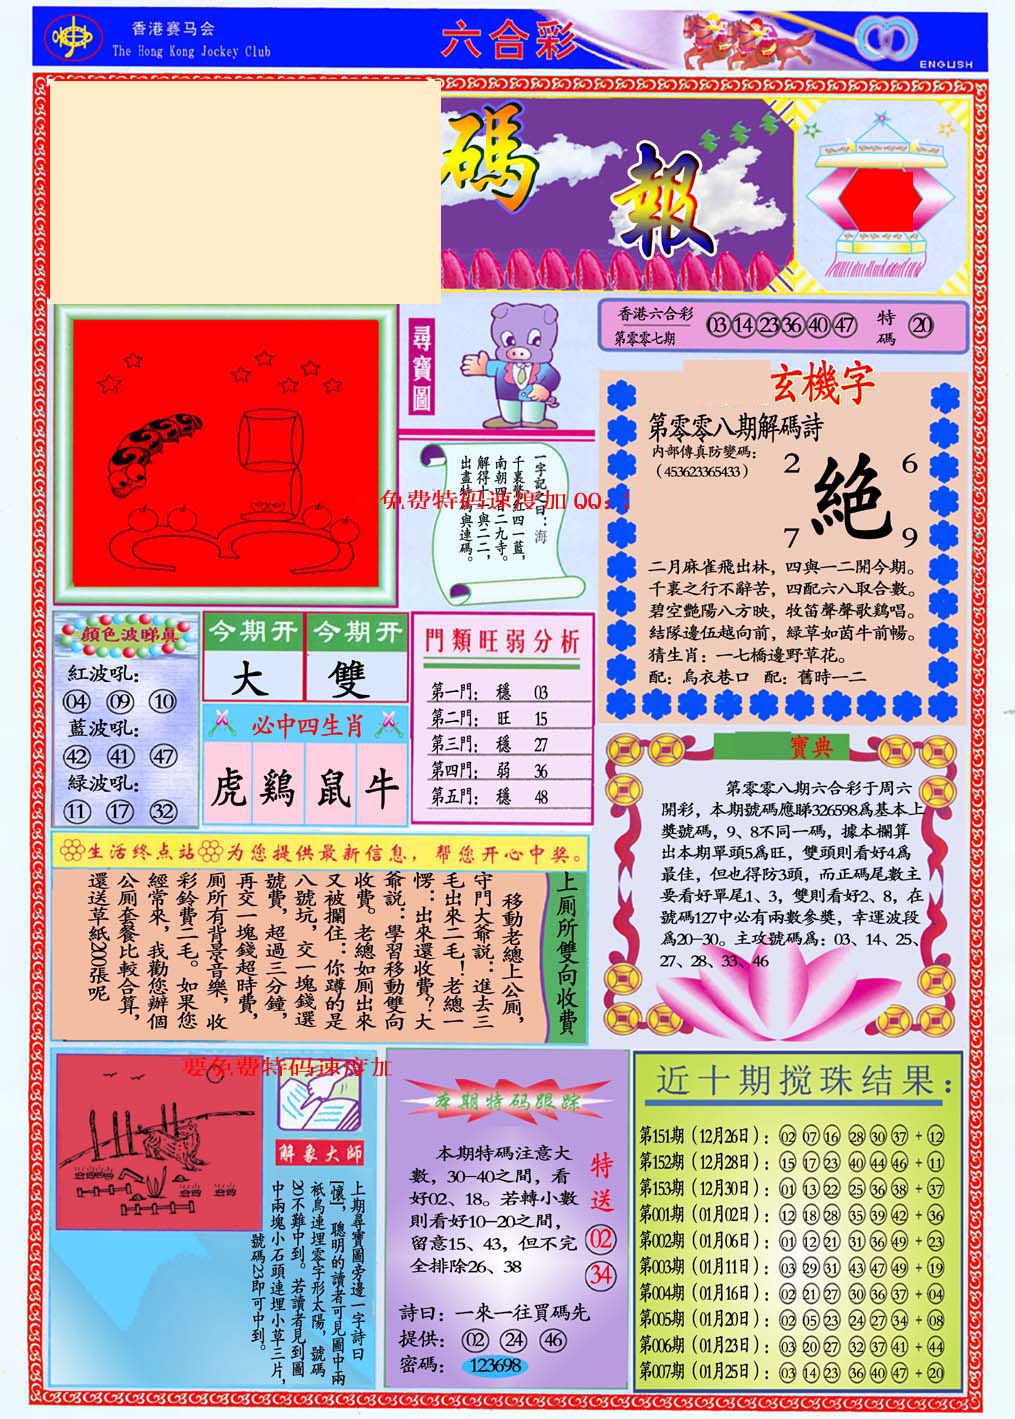 香港赛马会
The Hong Kong Jockey Club
六合彩
ENGLISH
碼報
尋寶圖
香港六合彩
第零零七期
03 14 23 36 40 47
特碼 20
一字記之曰：海
南朝四百二九寺。
解得十二與二二，
出盡特碼與連碼。
免费特码速度加QQ:
玄機字
第零零八期解碼詩
内部傳真防變碼：
（453623365433）
2 6
絕
7 9
二月麻雀飛出林，四與一二開今期。
千裏之行不辭苦，四配六八取合數。
碧空艷陽八方映，牧笛聲聲歌鷄唱。
結隊邊伍越向前，緑草如茵牛前暢。
猜生肖：一七橋邊野草花。
配：烏衣巷口 配：舊時一二
顔色波睇真
紅波吼：
04 09 10
藍波吼：
42 41 47
緑波吼：
11 17 32
今期开 今期开
大 雙
必中四生肖
虎 鷄 鼠 牛
門類旺弱分析
第一門： 穩 03
第二門： 旺 15
第三門： 穩 27
第四門： 弱 36
第五門： 穩 48
寶典
第零零八期六合彩于周六
開彩，本期號碼應睇326598爲基本上
獎號碼，9、8不同一碼，據本欄算
出本期單頭5爲旺，雙頭則看好4爲
最佳，但也得防3頭，而正碼尾數主
要看好單尾1、3，雙則看好2、8，在
號碼127中必有兩數参獎，幸運波段
爲20-30。主攻號碼爲：03、14、25、
27、28、33、46
生活终点站 为您提供最新信息，帮您开心中奖。
上厠所雙向收費
移動老總上公厠，
守門大爺説：進去三
毛出來二毛！老總一
愣：出來還收費？大
爺説：學習移動雙向
收費。老總如厠出來
又被攔住：你蹲的是
八號坑，交一塊錢選
號費，超過三分鐘，
再交一塊錢超時費，
厠所有背景音樂，收
彩鈴費二毛。如果您
經常來，我勸您辦個
公厠套餐比較合算，
還送草紙2000張呢
要免费特码速度加
解象大師
上期尋寶圖旁邊一字詩曰
[懷]，聰明的讀者可見圖中兩
衹鳥連埋零字形太陽，號碼
20不難中到。若讀者見到圖
中兩塊小石頭連埋小草三片，
號碼23即可中到。
本期特码跟踪
本期特碼注意大
數，30-40之間，看
好02、18。若轉小數
則看好10-20之間，
留意15、43，但不完
全排除26、38
特送
02
34
詩曰：一來一往買碼先
提供：02 24 46
密碼：123698
近十期搅珠结果：
第151期（12月26日）：02 07 16 28 30 37 + 12
第152期（12月28日）：15 17 23 40 44 46 + 11
第153期（12月30日）：01 13 22 25 36 38 + 37
第001期（01月02日）：12 18 28 35 39 42 + 36
第002期（01月06日）：01 12 21 31 36 49 + 23
第003期（01月11日）：03 29 31 43 47 49 + 19
第004期（01月16日）：02 21 27 30 36 37 + 04
第005期（01月20日）：02 05 23 24 27 34 + 08
第006期（01月23日）：03 20 27 32 37 41 + 44
第007期（01月25日）：03 14 23 36 40 47 + 20